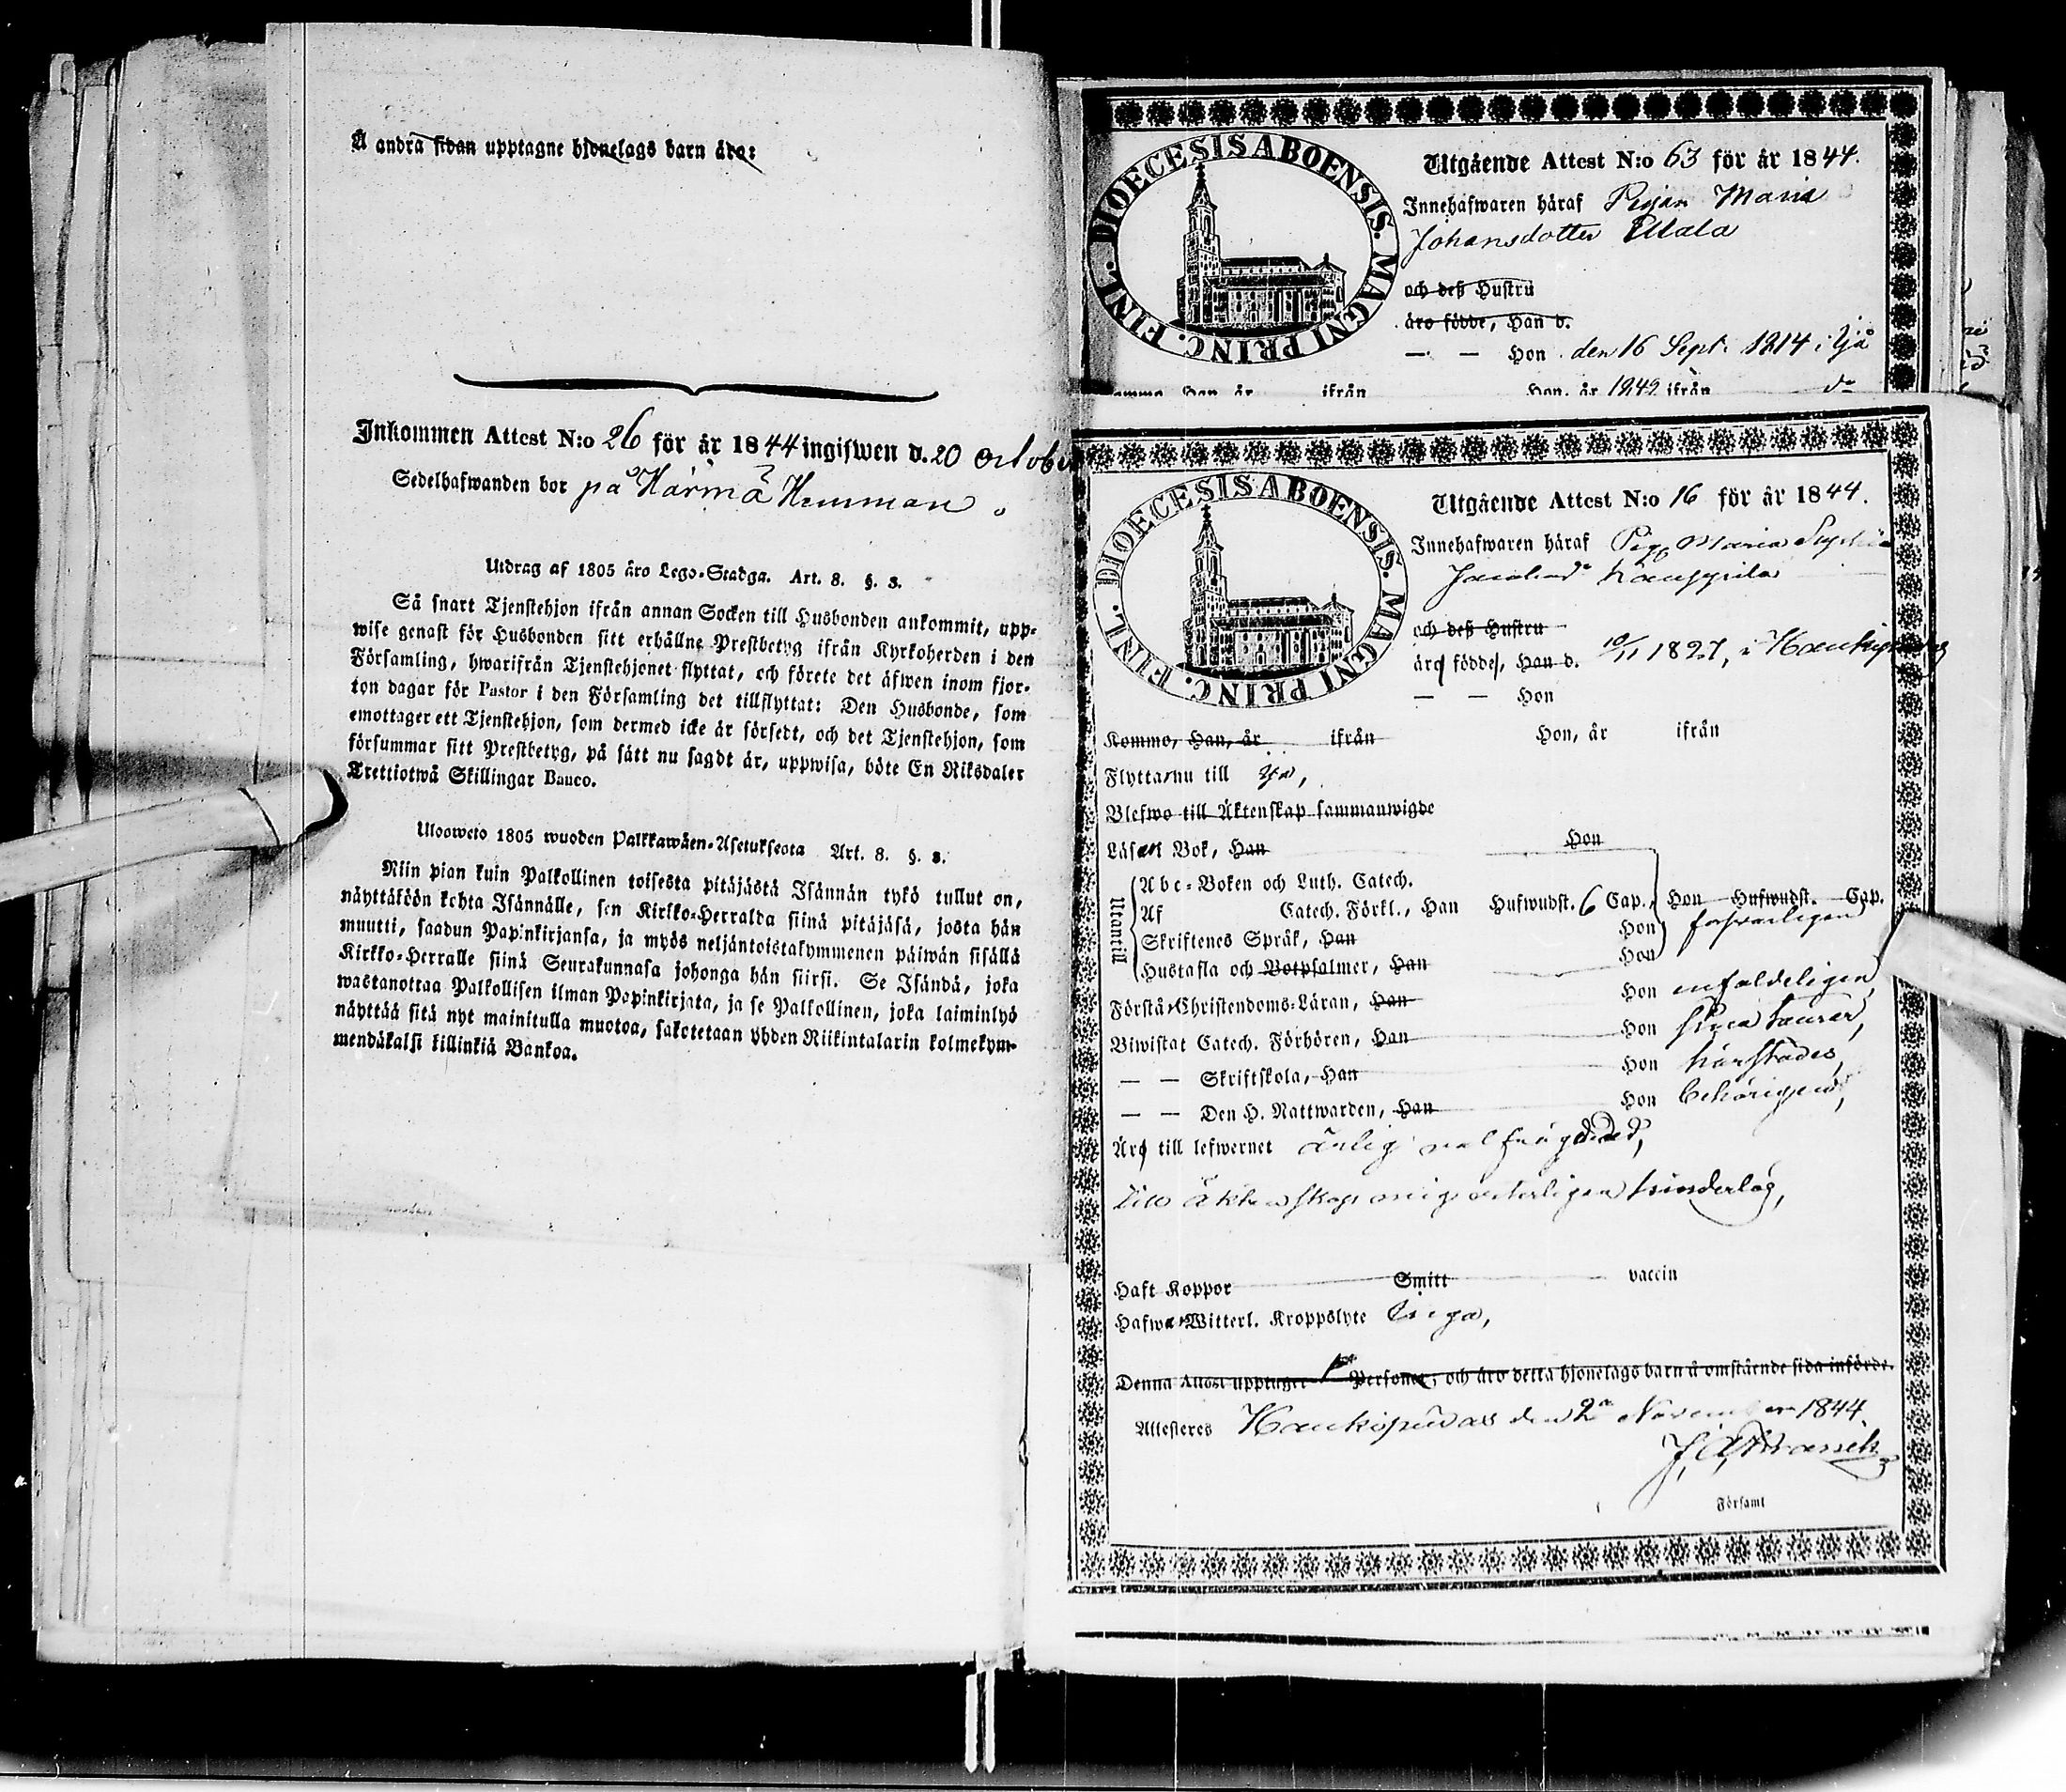 Å andra sidan upptagne hjonelags barn äro:
Inkommen Attest N:o 26 för år 1844 ingifwen d. 20 October
Sedelhafwanden bor på Härmä Hemman
Utdrag af 1805 åro Lego-Stadga. Art. 8. §. 3.
Så snart Tjenstehjon ifrån annan Socken till Husbonden ankommit, upp-
wise genast för Husbonden sitt erhållne Prestbetyg ifrån Kyrkoherden i den
Församling, hwarifrån Tjenstehjonet flyttat, och förete det äfwen inom fjor-
ton dagar för Pastor i den Församling det tillflyttat: Den Husbonde, som
emottager ett Tjenstehjon, som dermed icke är försedt, och det Tjenstehjon, som
försummar sitt Prestbetyg, på sätt nu sagdt är, uppwisa, böte En Riksdaler
Trettiotwå Skillingar Banco.
Uloowето 1805 wuoden Palkkawäen-Asetukseota Art. 8. §. 3.
Niin pian kuin Palkollinen toisesta pitäjästä Isännän tykö tullut on,
näyttäköön kohta Isännälle, sen Kirkko-Herralda siinä pitäjäsä, josta hän
muutti, saadun Papinkirjansa, ja myös neljäntoistakymmenen päiwän sisällä
Kirkko-Herralle siinä Seurakunnasa johonga hän siirsi. Se Isändä, joka
wastanottaa Palkollisen ilman Papinkirjata, ja se Palkollinen, joka laiminlyö
näyttää sitä nyt mainitulla muotoa, sakotetaan yhden Riikintalarin kolmekym-
mendäkaksi killinkiä Bankoa.
DIOECESIS ABOENSIS. MAGNI PRINC. FINL.
Utgående Attest N:o 63 för år 1844.
Innehafwaren häraf Pigan Maria
Johansdotter Ullala
och deß Hustru
äro födde, Han d.
— — Hon den 16 Sept. 1814 i Ijå
Han, år ifrån Hon, år 1842 ifrån do
DIOECESIS ABOENSIS. MAGNI PRINC. FINL.
Utgående Attest N:o 16 för år 1844.
Innehafwaren häraf Pig. Maria Sophia
Kauppila
och deß Hustru
äro födde, Han d. 10/11 1827, i Haukipudas
— — Hon
Komma, Han, år ifrån Hon, år ifrån
Flytta nu till Ijo,
Blefwo till Äktenskap sammanwigde
Läsa i Bok, Han Hon
Utantill
Abc-Boken och Luth. Catech.
Af Catech. Förkl., Han Hufwudst. 6 Cap. Hon Hufwudst. Cap.
Skriftenes Språk, Han Hon försvarligen
Hustafla och Botpsalmer, Han Hon
Förstå Christendoms-Läran, Han Hon enfaldeligen
Biwistat Catech. Förhören, Han Hon sina turer,
— — Skriftskola, Han Hon härstädes,
— — Den H. Nattwarden, Han Hon behörigen,
Äro till lefwernet ärlig välfrägdad,
till äktenskap mig veterligen hinderlös,
Haft Koppor Smitt vaccin
Hafwa Witterl. Kroppslyte Inga,
Denna Attest upptager 1 Personer, och äro detta hjonelags barn å omstående sida införde.
Attesteres Haukipudas den 2 November 1844
Församl